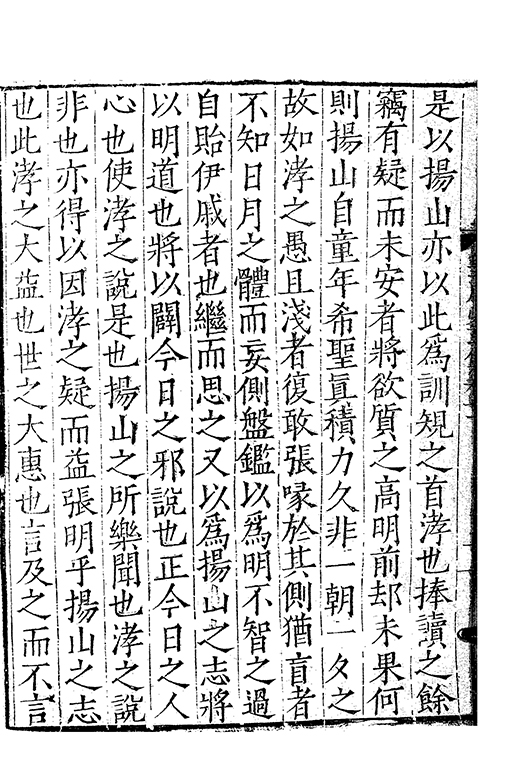 是以揚山亦以此爲訓規之首涍也捧讀之餘
竊有疑而未安者將欲質之高明前却未果何
則揚山自童年希聖眞積力久非一朝一夕之
故如涍之愚且淺者復敢張喙於其側猶盲者
不知日月之體而妄側盤鑑以爲明不智之過
自貽伊戚者也繼而思之又以爲揚山之志將
以明道也將以闢今日之邪說也正今日之人
心也使涍之說是也揚山之所樂聞也涍之說
非也亦得以因涍之疑而益張明乎揚山之志
也此涍之大益也世之大惠也言及之而不言